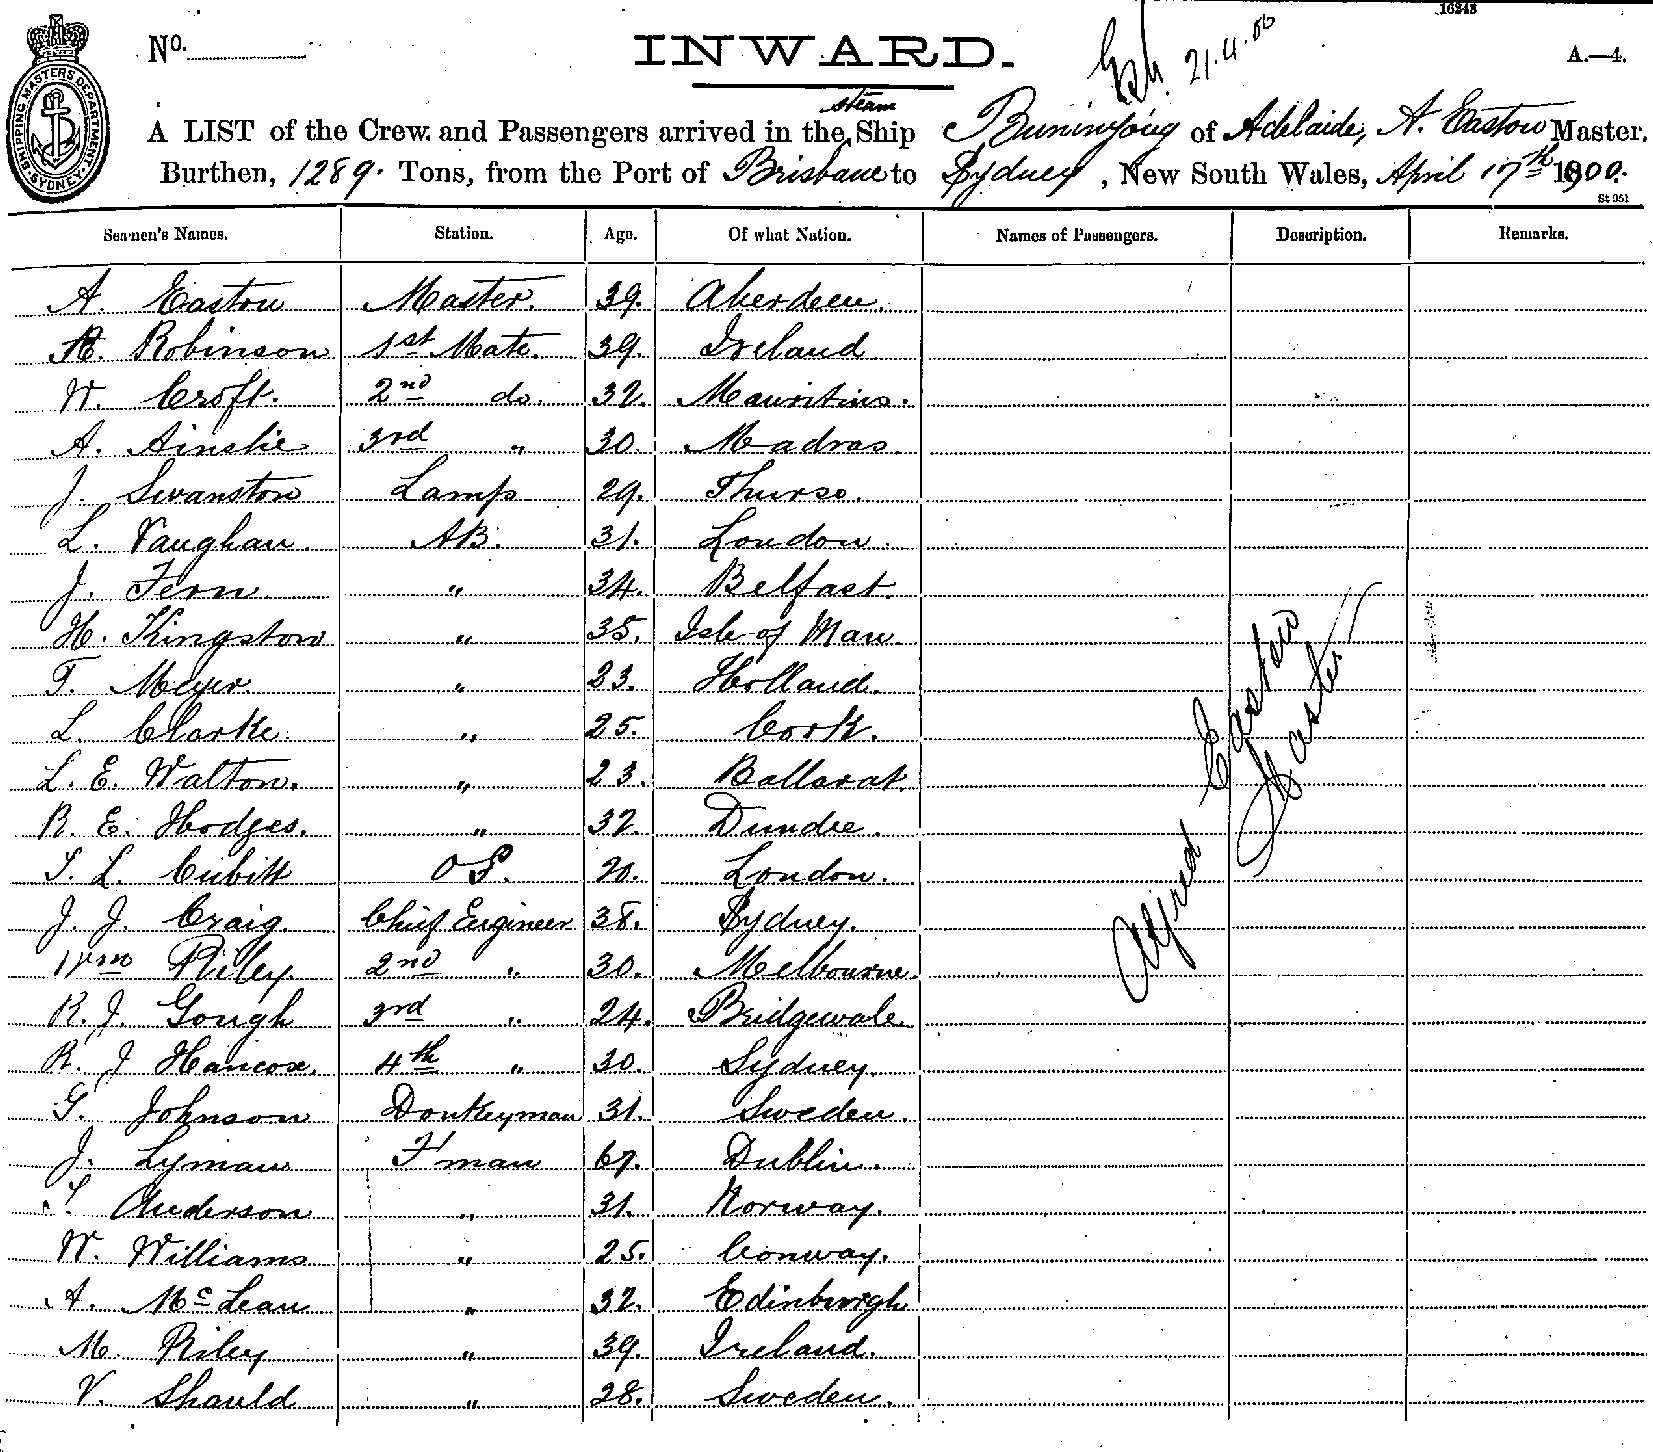 16243
SHIPPING MASTERS DEPARTMENT SYDNEY
No.
INWARD.
21.4.00
A.—4.
steam
A LIST of the Crew and Passengers arrived in the Ship Buninyong of Adelaide, A. Easton Master,
Burthen, 1289. Tons, from the Port of Brisbane to Sydney, New South Wales, April 17th 1900.
St 951
Seamen's Names. Station. Age. Of what Nation. Names of Passengers. Description. Remarks.
A. Easton Master. 39. Aberdeen.
R. Robinson 1st Mate. 39. Ireland
W. Croft. 2nd do. 32. Mauritius.
A. Ainslie 3rd " 30. Madras.
J. Swanston Lamps 29. Thurso.
L. Vaughan. AB. 31. London.
J. Fern " 34. Belfast.
H. Kingston " 35. Isle of Man.
F. Meyer " 23. Holland.
L. Clarke. " 25. Cork.
L. E. Walton. " 23. Ballarat.
R. E. Hodges. " 32. Dundee.
S. L. Cubitt OS. 20. London.
J. J. Craig. Chief Engineer 38. Sydney.
Wm Riley 2nd " 30. Melbourne.
R. J. Gough 3rd " 24. Bridgewater
R. J Hancox. 4th " 30. Sydney.
G. Johnson Donkeyman 31. Sweden.
J. Lyman F'man 67. Dublin.
Anderson " 31. Norway.
W. Williams " 25. Conway.
A. McLean " 32. Edinburgh
M. Riley " 39. Ireland.
V. Shauld " 28. Sweden.
Alfred Easton
Master